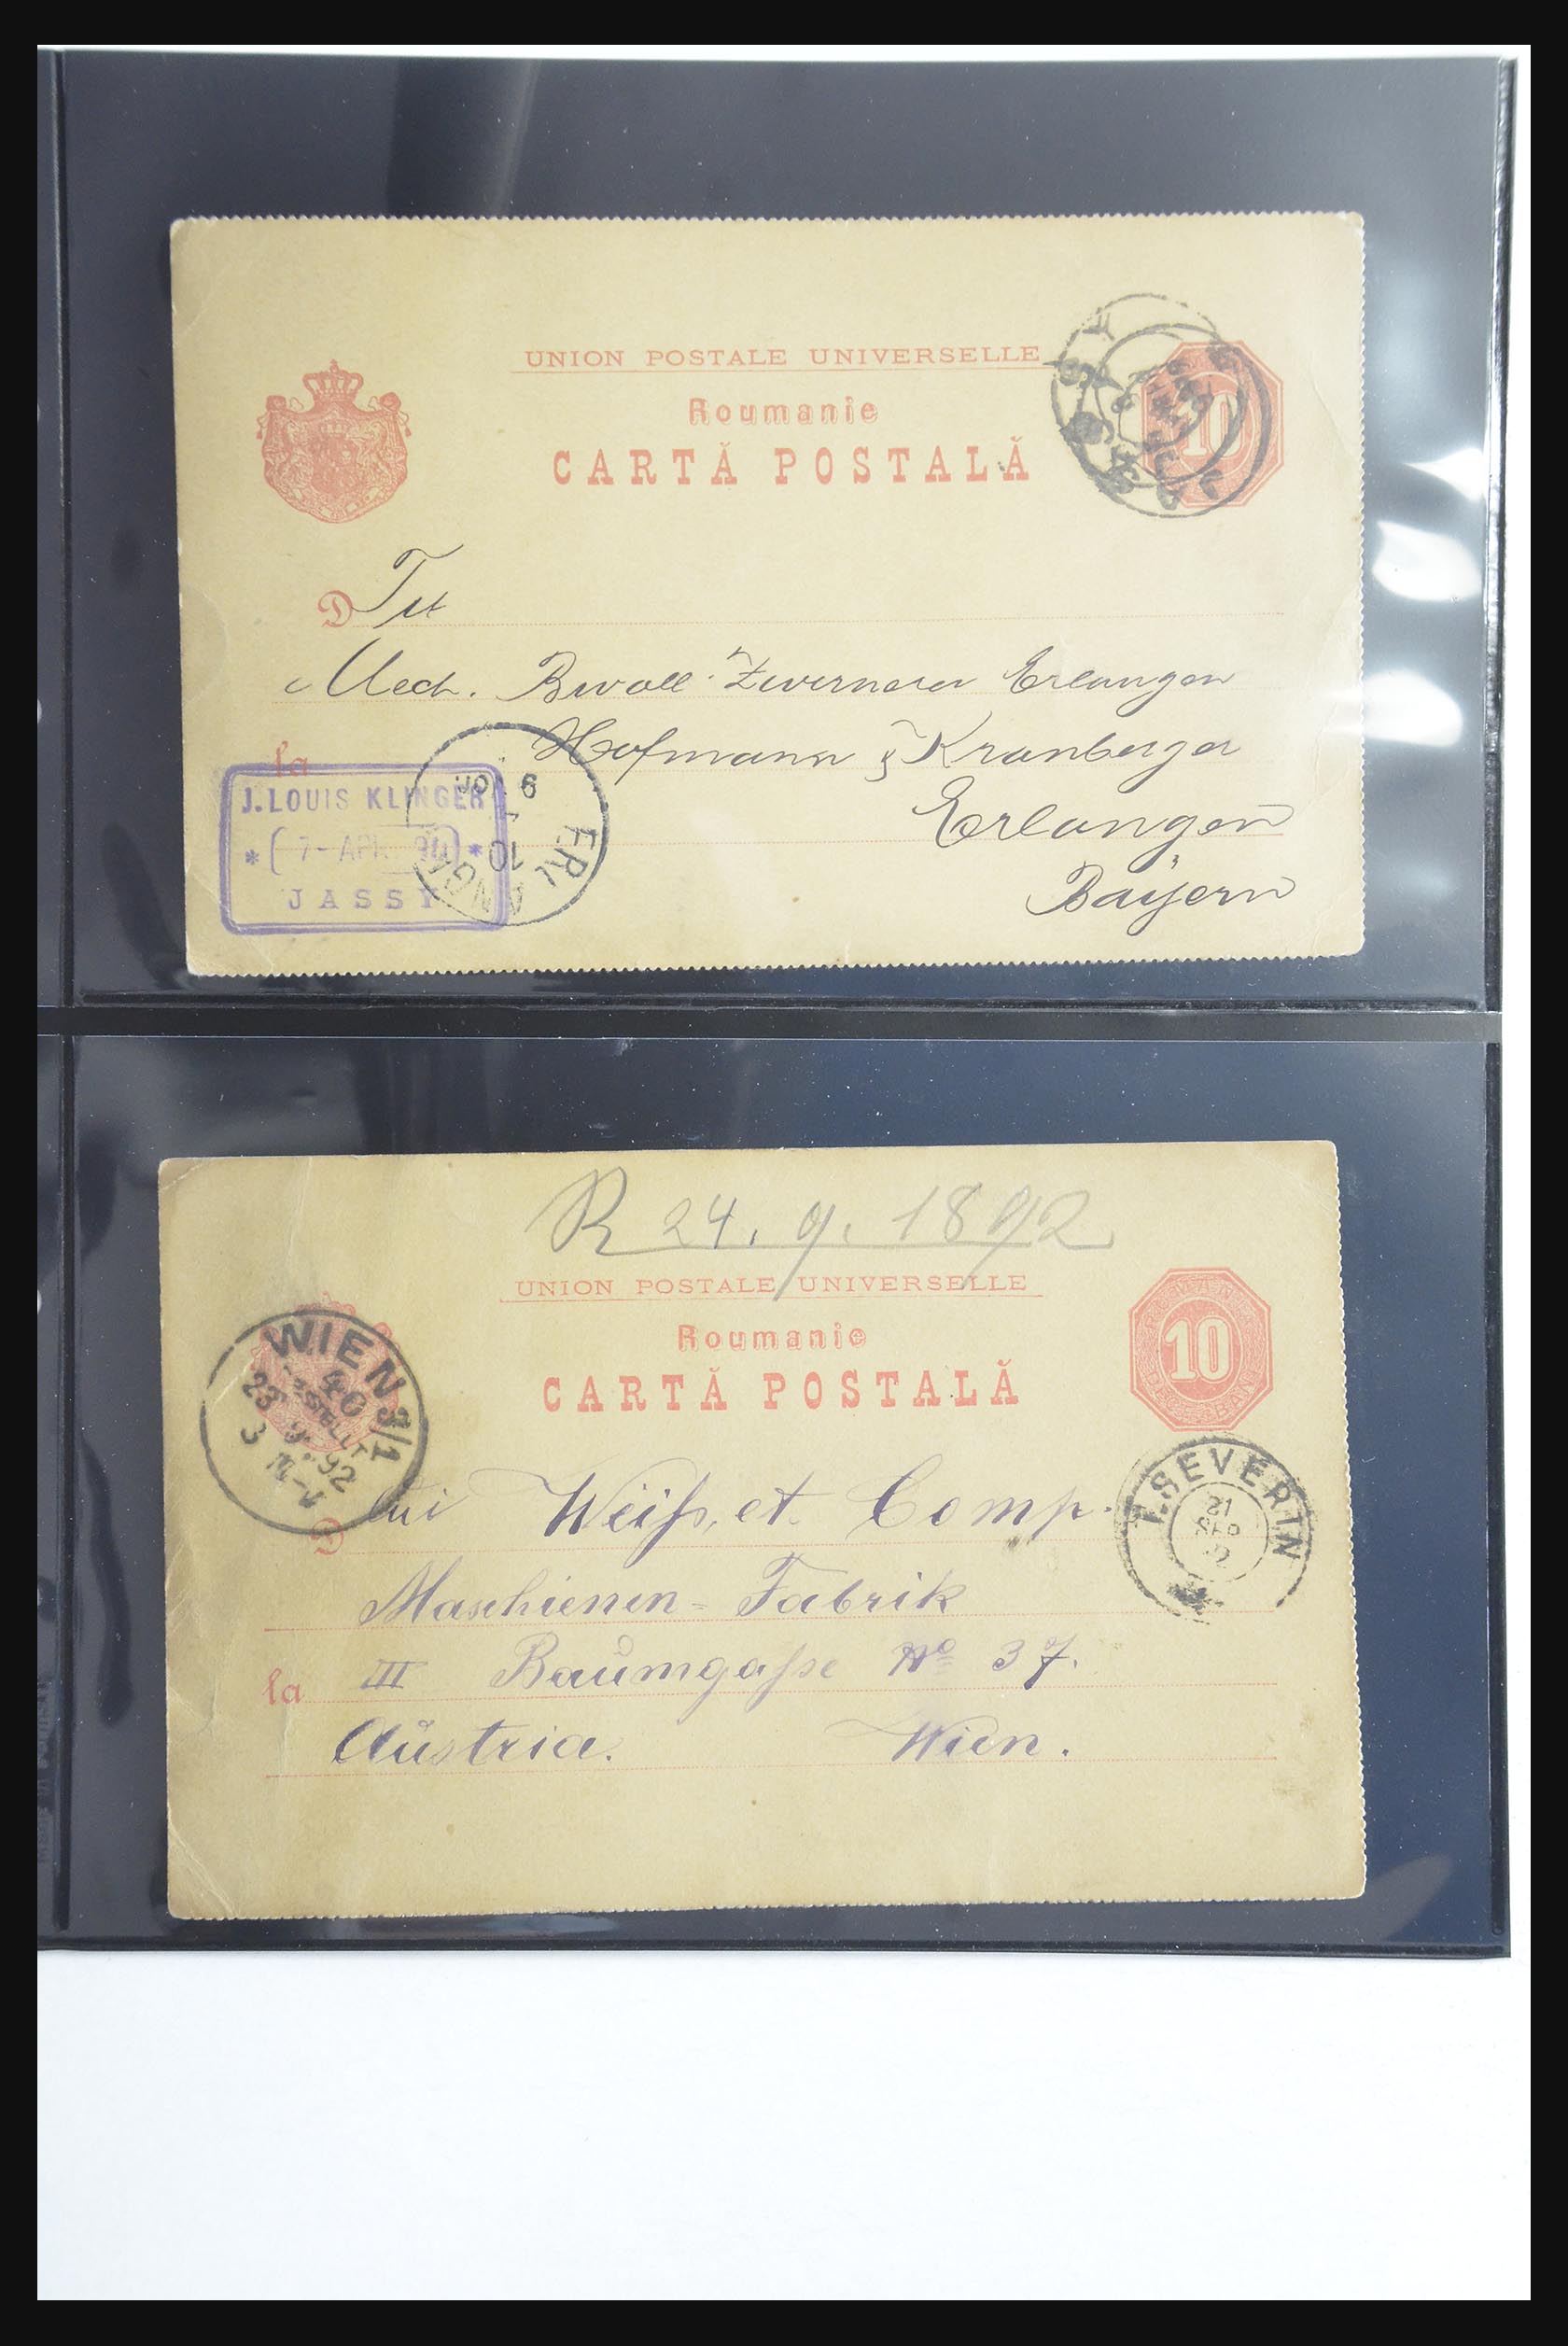 UNION POSTALE UNIVERSELLE
Roumanie
CARTĂ POSTALĂ
10
D
Mech. Zwirnerei Erlangen
Hofmann & Kranberger
la
Erlangen
Bayern
J. LOUIS KLINGER
* (7- APR 90) *
JASSY
R 24. 9. 1892
UNION POSTALE UNIVERSELLE
Roumanie
CARTĂ POSTALĂ
10
BANI
WIEN 3/1
40
BESTELLT
23 9. 92
T. SEVERIN
21
SEP
D lui Weiss, et. Comp.
Maschienen-Fabrik
la III Baumgasse No 37.
Austria. Wien.